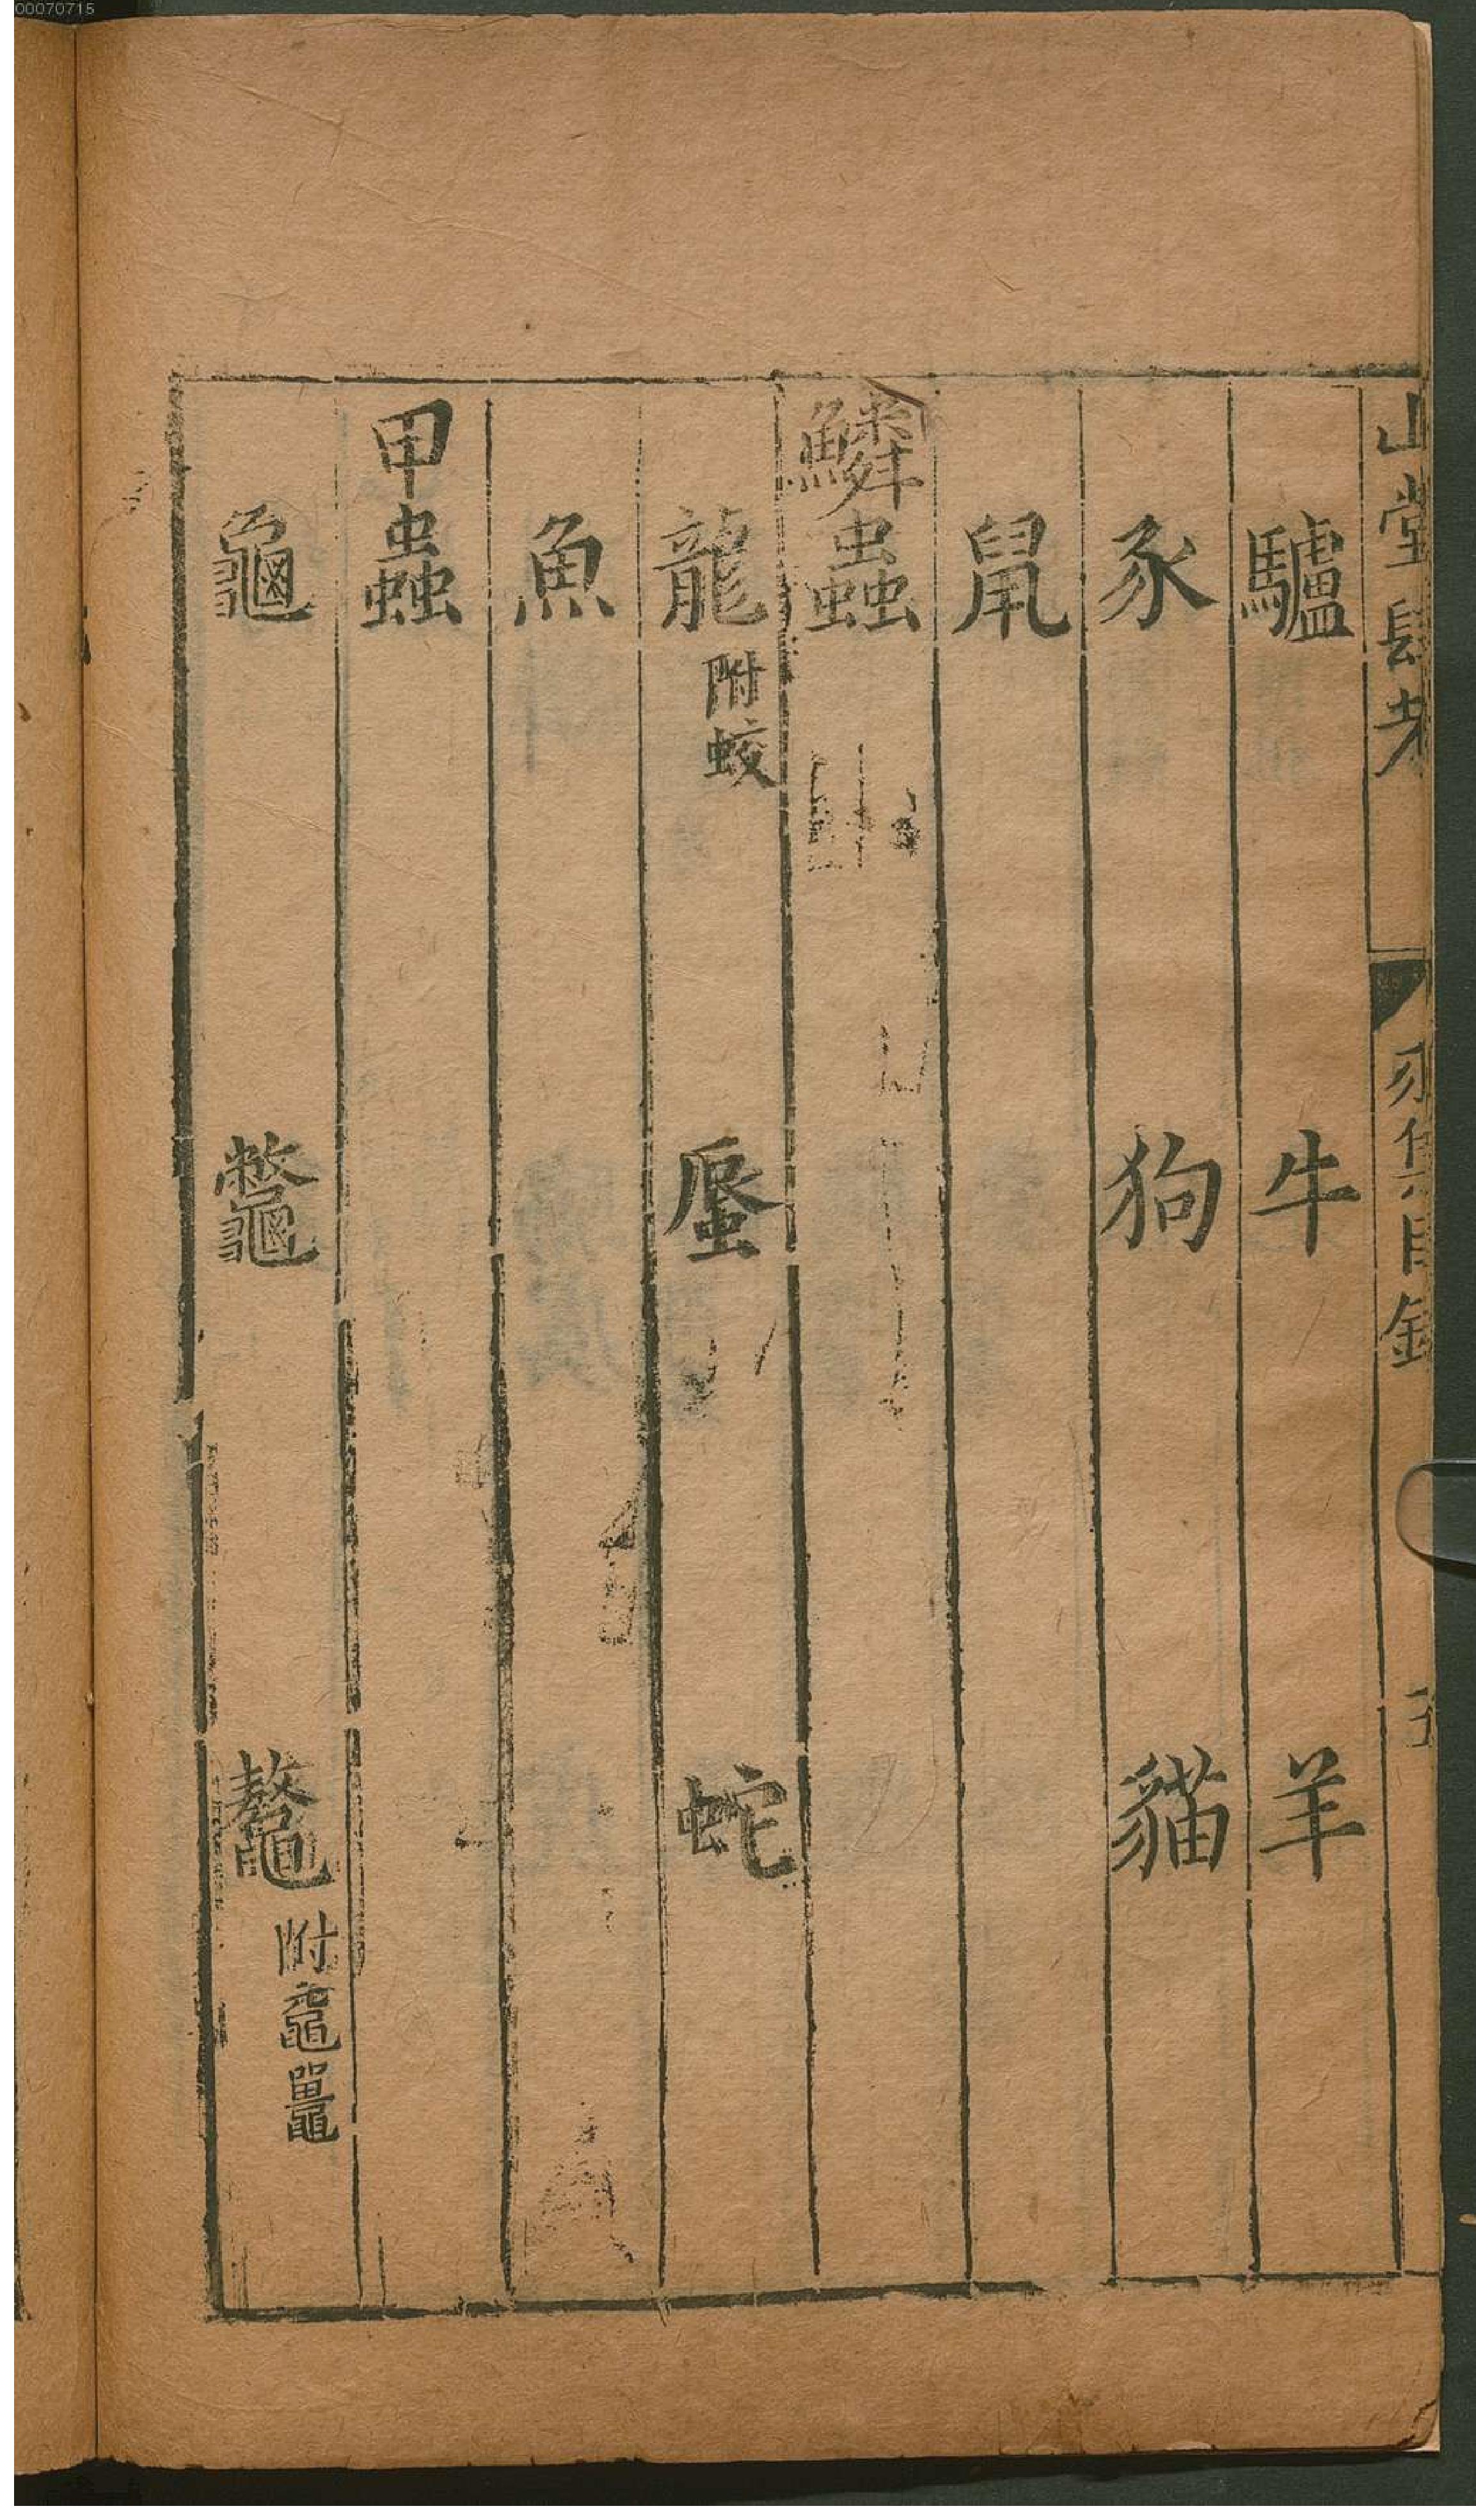 00070715
山堂肆考
羽集目録
五
驢 牛 羊
豕 狗 貓
鼠
鱗蟲
龍附蛟 蜃 蛇
魚
甲蟲
龜 鼈 鼇附黿鼉